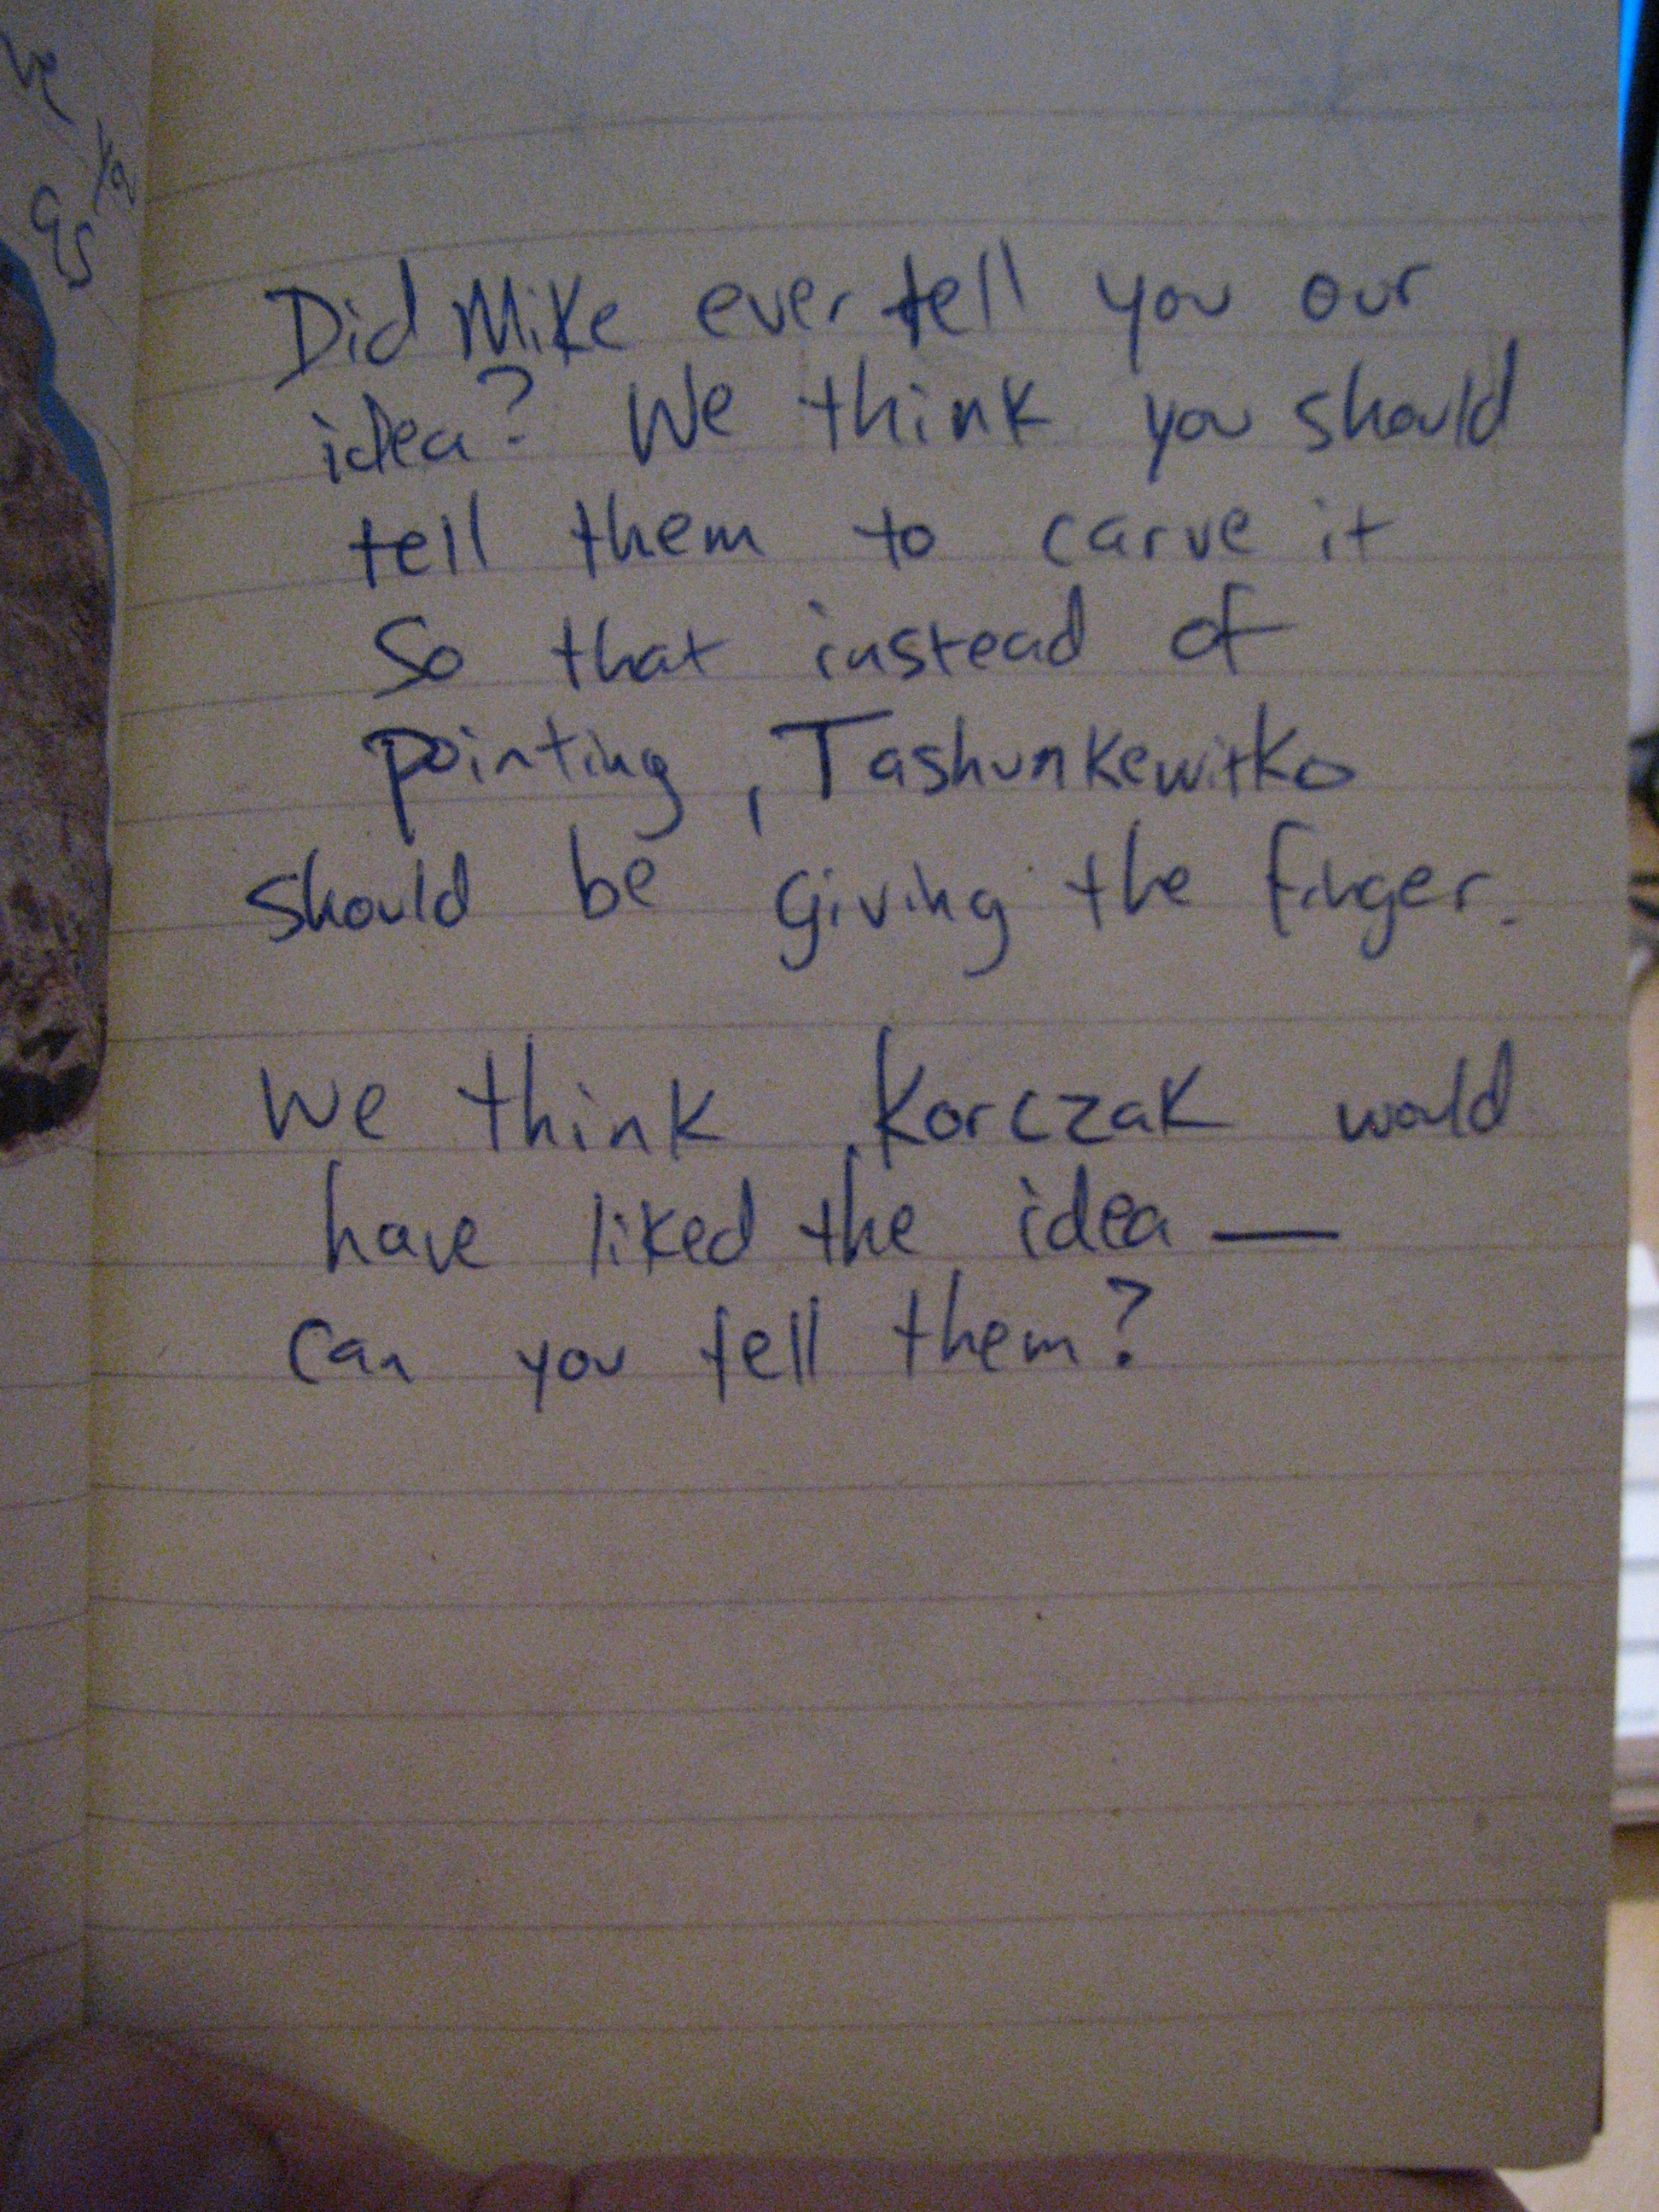 Did Mike ever tell you our
idea? We think you should
tell them to carve it
So that instead of
pointing, Tashunkewitko
should be giving the finger.
We think Korczak would
have liked the idea —
can you tell them?